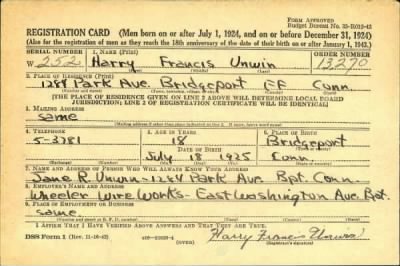 FORM APPROVED
Budget Bureau No. 33-R012-43
REGISTRATION CARD (Men born on or after July 1, 1924, and on or before December 31, 1924)
(Also for the registration of men as they reach the 18th anniversary of the date of their birth on or after January 1, 1943.)
SERIAL NUMBER 1. NAME (Print) ORDER NUMBER
W 252 Harry Francis Unwin 13290
(First) (Middle) (Last)
2. PLACE OF RESIDENCE (Print)
1284 Park Ave Bridgeport Conn.
(Number and street) (Town, township, village, or city) (County) (State)
[THE PLACE OF RESIDENCE GIVEN ON LINE 2 ABOVE WILL DETERMINE LOCAL BOARD
JURISDICTION; LINE 2 OF REGISTRATION CERTIFICATE WILL BE IDENTICAL]
3. MAILING ADDRESS
same
4. TELEPHONE 5. AGE IN YEARS 6. PLACE OF BIRTH
5-3781 18 Bridgeport
DATE OF BIRTH
July 18 1925 Conn.
7. NAME AND ADDRESS OF PERSON WHO WILL ALWAYS KNOW YOUR ADDRESS
Jane Unwin-1284 Park Ave. Bpt. Conn.
8. EMPLOYER'S NAME AND ADDRESS
Wheeler Wire Works-East Washington Ave. Bpt.
9. PLACE OF EMPLOYMENT OR BUSINESS
same
I AFFIRM THAT I HAVE VERIFIED ABOVE ANSWERS AND THAT THEY ARE TRUE.
DSS Form 1 (OVER) Harry Francis Unwin
(Registrant's signature)